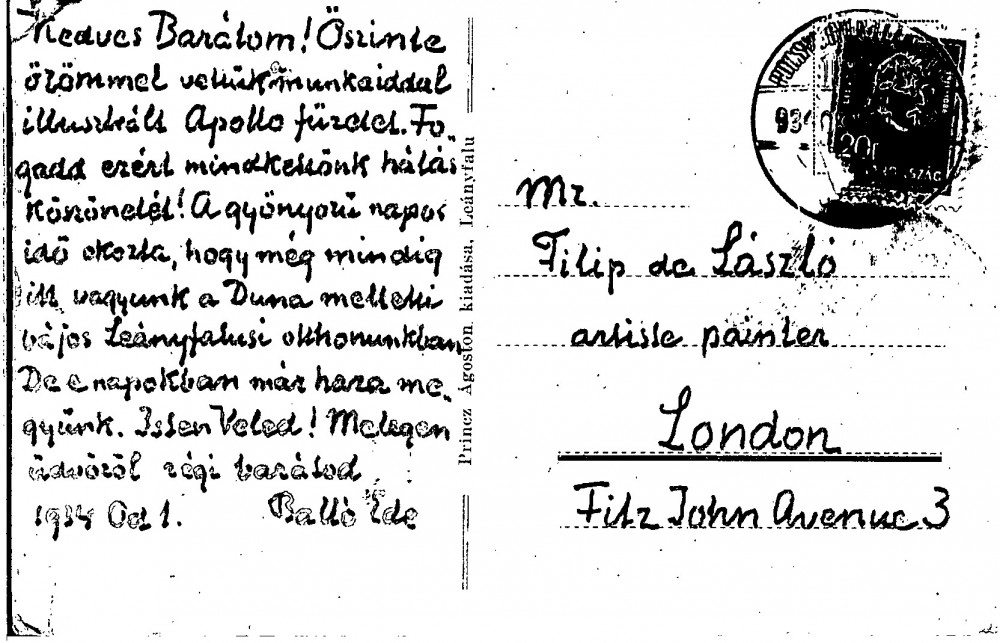 Kedves Barátom! Őszinte
örömmel vettük munkáiddal
illusztrált Apollo füzetet. Fo-
gadd ezért mindkettőnk hálás
köszönetét! A gyönyörű napos
idő okozta, hogy még mindig
itt vagyunk a Duna melletti
bájos Leányfalusi otthonunkban
De e napokban már haza me-
gyünk. Isten Veled! Melegen
üdvözöl régi barátod
1934 Oct 1. Balló Ede
Princz Ágoston kiadása, Leányfalu
POCSM
934
20f
Mr.
Filip de László
artiste painter
London
Fitz John Avenue 3